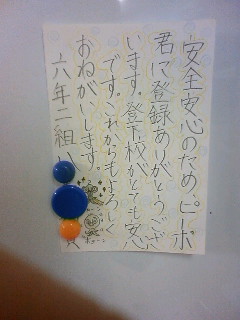 安全安心のため、ピーポ
君に登録ありがとうござ
います。登下校がとても安心
です。これからもよろしく
おねがいします。
六年二組